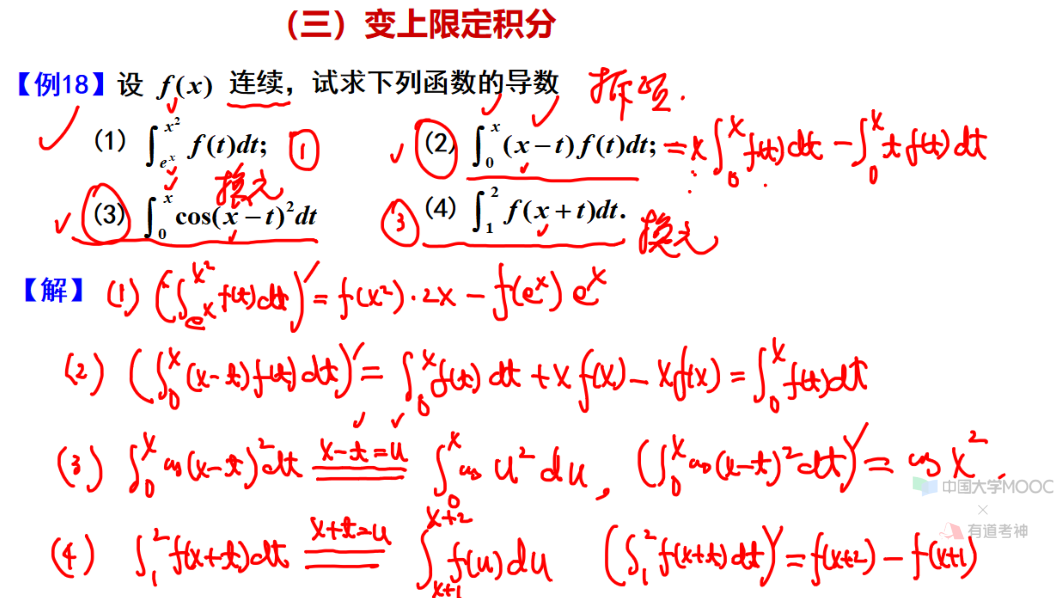 （三）变上限定积分
【例18】设 f(x) 连续，试求下列函数的导数 拆项.
(1) ∫_{e^x}^{x^2} f(t)dt; ① (2) ∫_0^x (x−t)f(t)dt; = x∫_0^x f(t)dt − ∫_0^x t f(t)dt
换元
(3) ∫_0^x cos(x−t)^2 dt ③ (4) ∫_1^2 f(x+t)dt. 换元
【解】 (1) (∫_{e^x}^{x^2} f(t)dt)′ = f(x^2)·2x − f(e^x) e^x
(2) (∫_0^x (x−t)f(t)dt)′ = ∫_0^x f(t)dt + x f(x) − x f(x) = ∫_0^x f(t)dt
(3) ∫_0^x cos(x−t)^2 dt x−t=u ∫_0^x cos u^2 du , (∫_0^x cos(x−t)^2 dt)′ = cos x^2 .
中国大学MOOC
×
有道考神
(4) ∫_1^2 f(x+t)dt x+t=u ∫_{x+1}^{x+2} f(u)du (∫_1^2 f(x+t)dt)′ = f(x+2) − f(x+1)